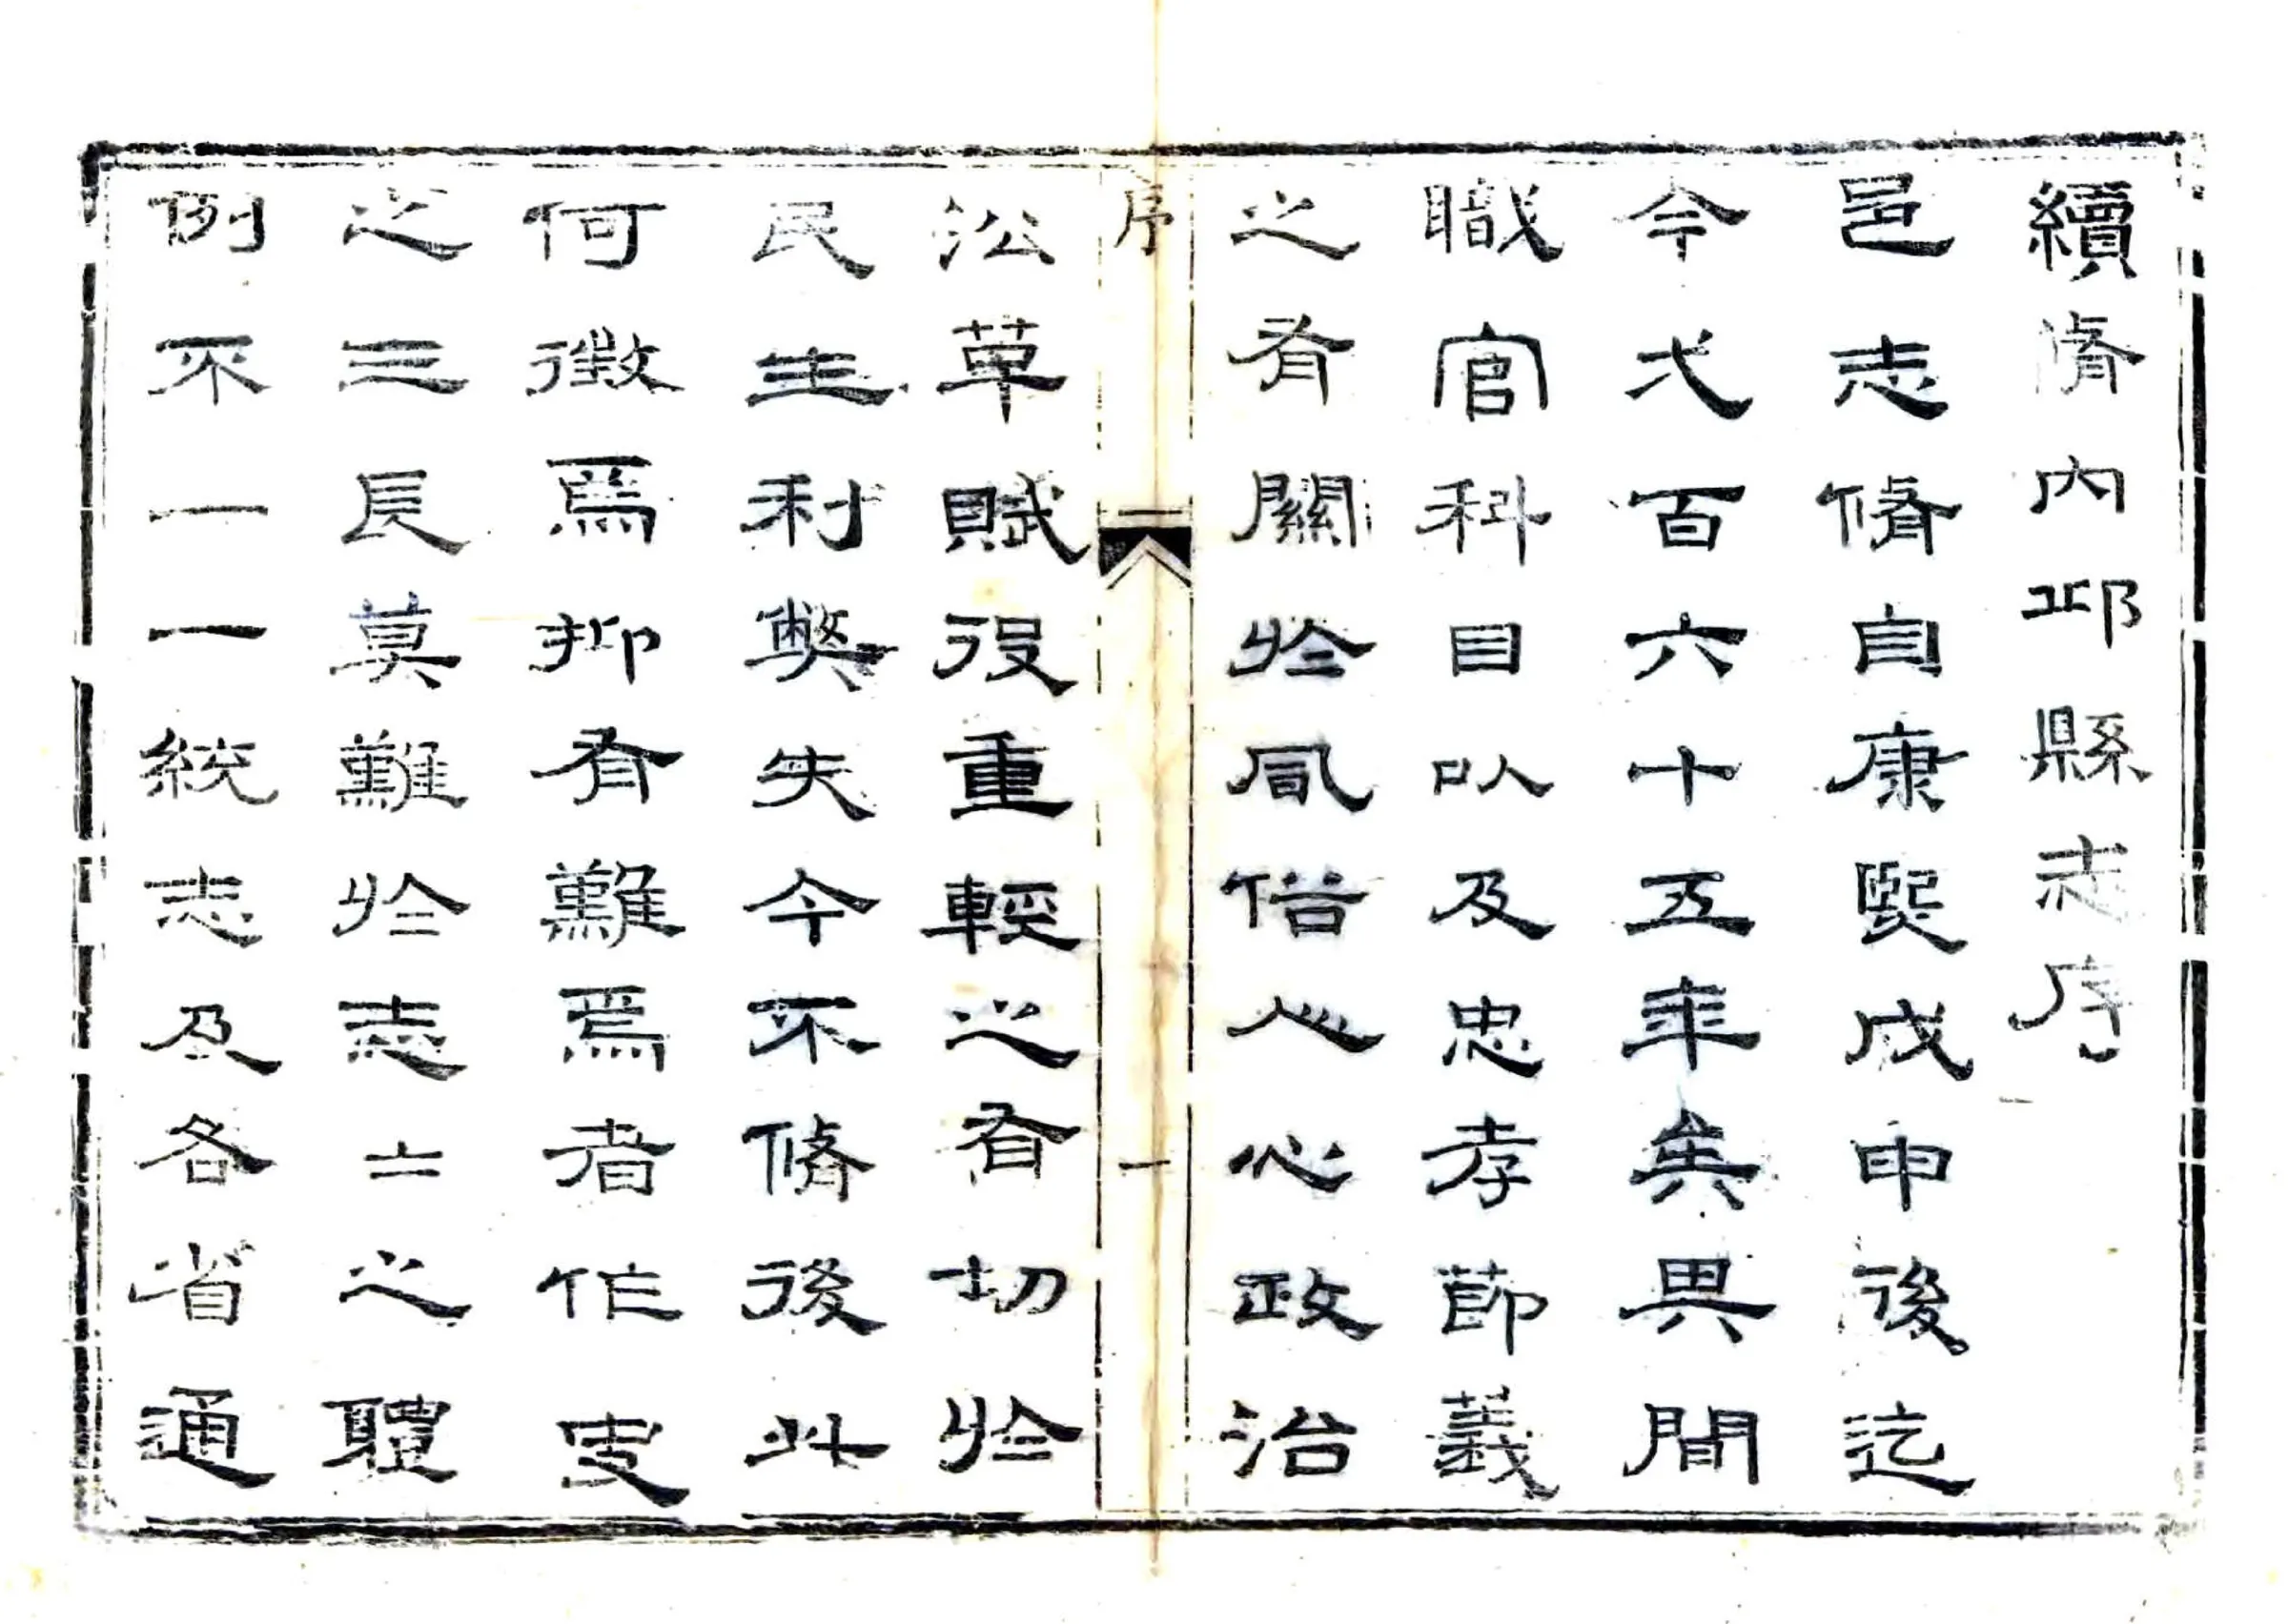 續脩內邱縣志序
邑志脩自康熙戊申後迄
今弌百六十五年矣其間
職官科目以及忠孝節義
之有關於風俗人心政治
序 一
沿革賦役重輕之有切於
民生利獘失今不脩後此
何徵焉抑有難焉者作史
之三長莫難於志二之體
例不一一統志及各省通